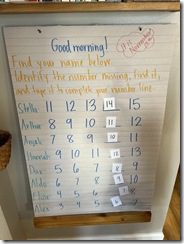 Good morning!
Find your name below.
Identify the number missing, find it,
and tape it to complete your number line.
Stella 11 12 13 14 15
Arthur 8 9 10 11 12
Angel 7 8 9 10 11
Hannah 9 10 11 12 13
Dax 5 6 7 8
Aldo 6 7 8 9 10
Elior 4 5 6 7 8
Alex 3 4 5 6